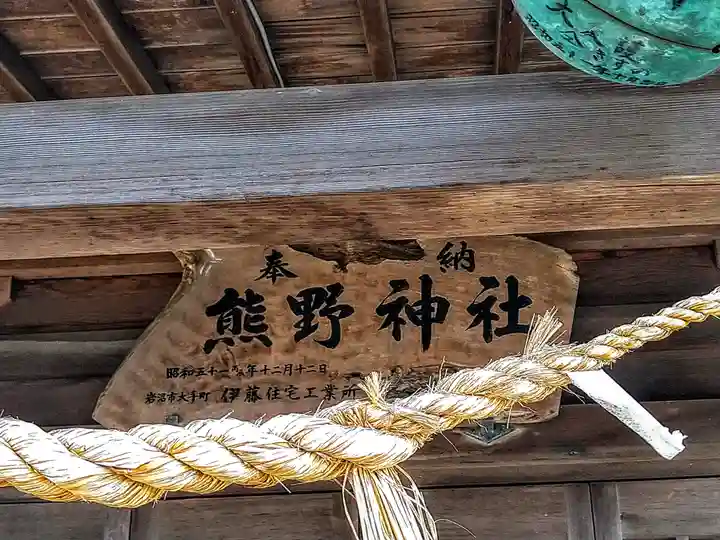 奉納
熊野神社
昭和五十一年十二月十二日
岩沼市大手町 伊藤住宅工業所